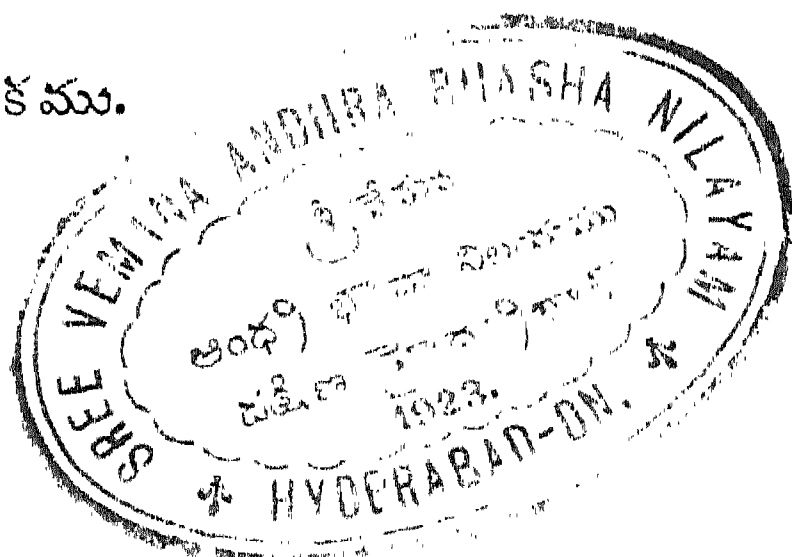 కము.
SREE VEMANA ANDHRA BHASHA NILAYAM
శ్రీ వేమన
ఆంధ్ర భాషా నిలయము
దక్షిణ
1923.
HYDERABAD-DN.